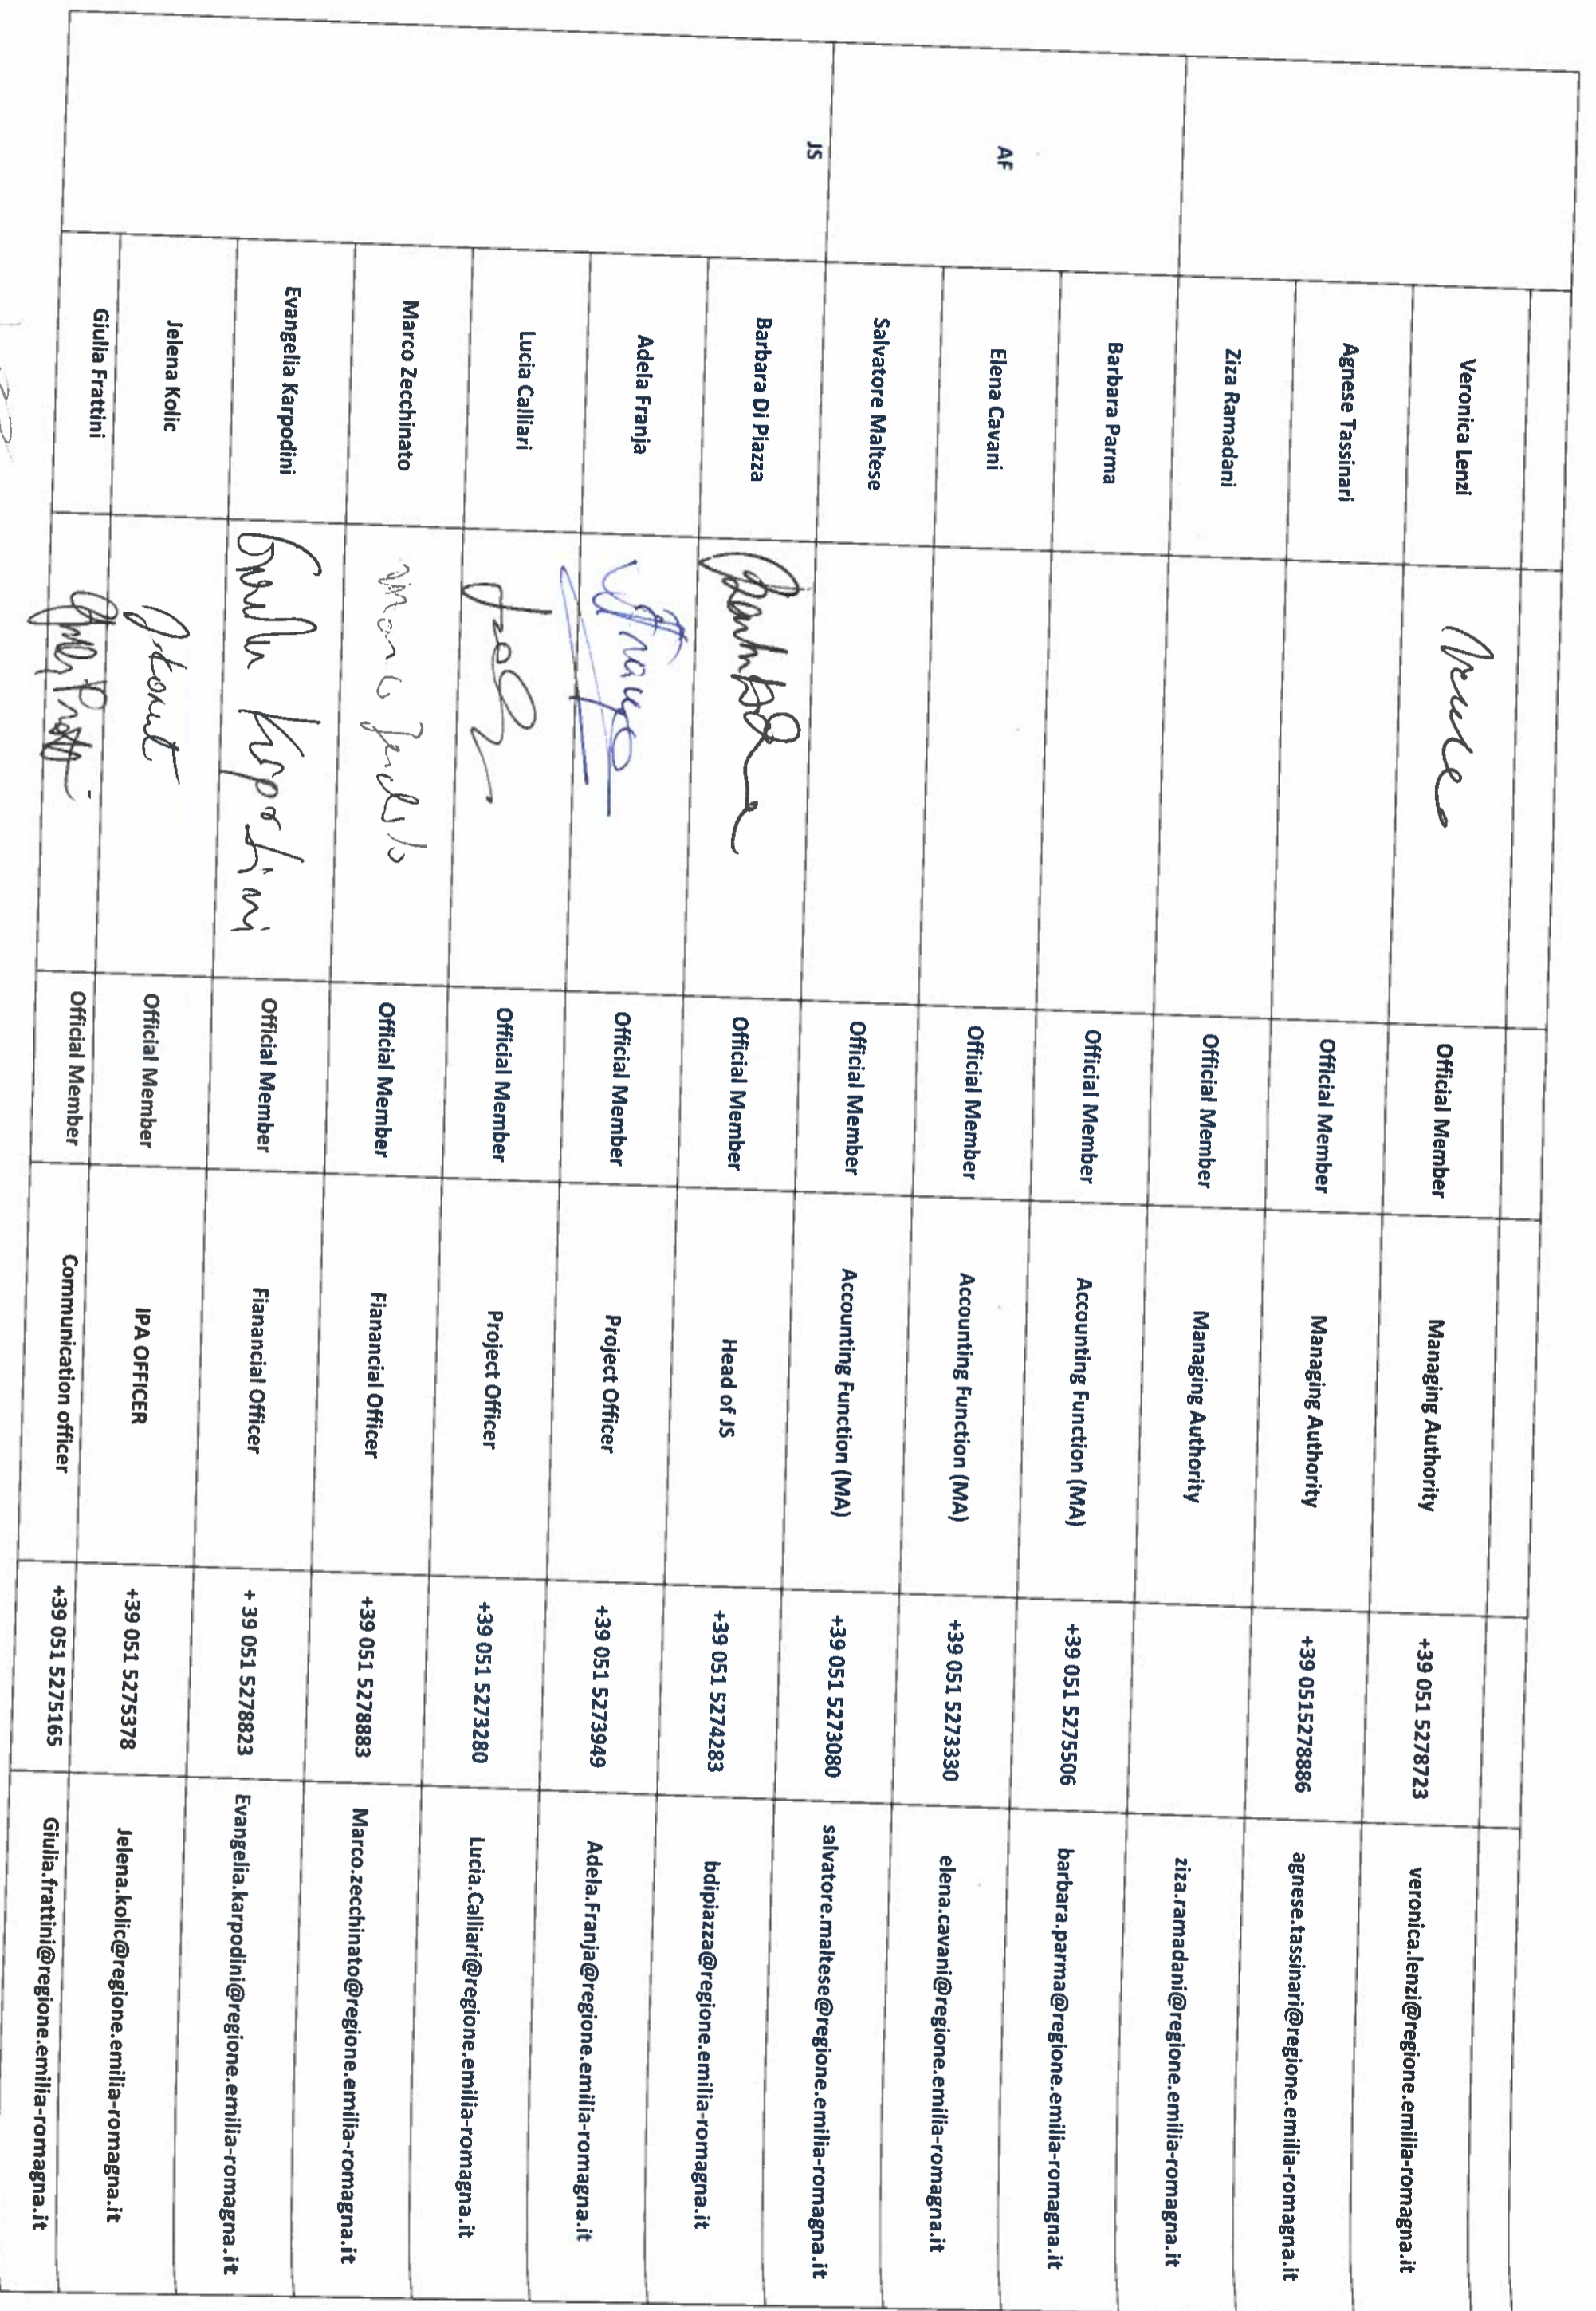 Veronica Lenzi Official Member Managing Authority +39 051 5278723 veronica.lenzi@regione.emilia-romagna.it
Agnese Tassinari Official Member Managing Authority +39 0515278886 agnese.tassinari@regione.emilia-romagna.it
Ziza Ramadani Official Member Managing Authority ziza.ramadani@regione.emilia-romagna.it
Barbara Parma Official Member Accounting Function (MA) +39 051 5275506 barbara.parma@regione.emilia-romagna.it
AF Elena Cavani Official Member Accounting Function (MA) +39 051 5273330 elena.cavani@regione.emilia-romagna.it
Salvatore Maltese Official Member Accounting Function (MA) +39 051 5273080 salvatore.maltese@regione.emilia-romagna.it
JS
Barbara Di Piazza Official Member Head of JS +39 051 5274283 bdipiazza@regione.emilia-romagna.it
Adela Franja Official Member Project Officer +39 051 5273949 Adela.Franja@regione.emilia-romagna.it
Lucia Calliari Official Member Project Officer +39 051 5273280 Lucia.Calliari@regione.emilia-romagna.it
Marco Zecchinato Official Member Fianancial Officer +39 051 5278883 Marco.zecchinato@regione.emilia-romagna.it
Evangelia Karpodini Official Member Fianancial Officer + 39 051 5278823 Evangelia.karpodini@regione.emilia-romagna.it
Jelena Kolic Official Member IPA OFFICER +39 051 5275378 Jelena.kolic@regione.emilia-romagna.it
Giulia Frattini Official Member Communication officer +39 051 5275165 Giulia.frattini@regione.emilia-romagna.it